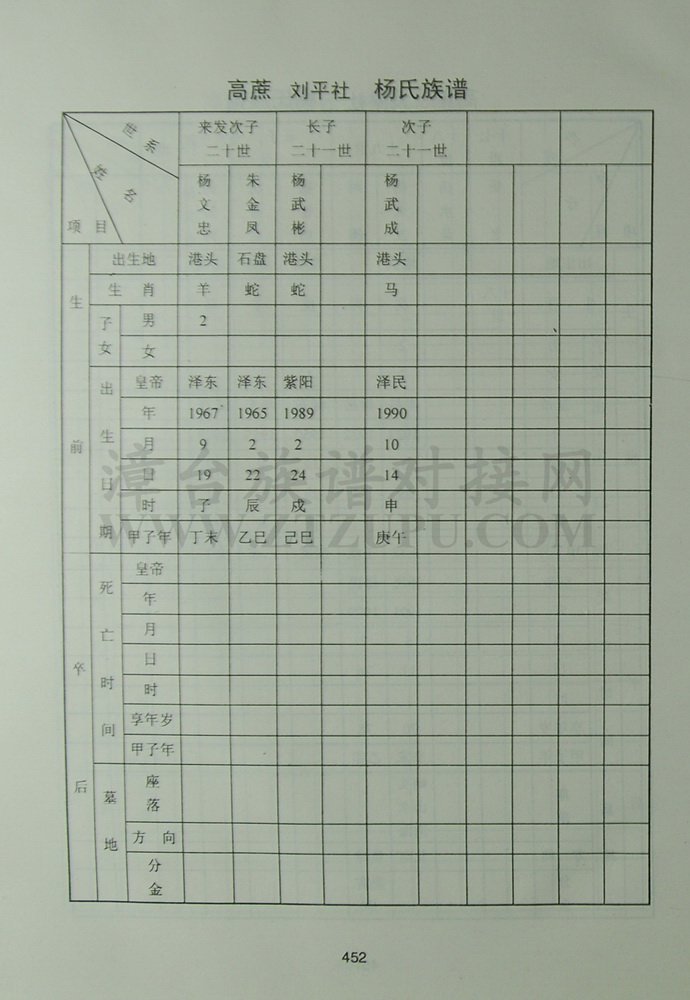 高蔗 刘平社 杨氏族谱
世系 来发次子 长子 次子
二十世 二十一世 二十一世
姓名 杨文忠 朱金凤 杨武彬 杨武成
项目
生前 出生地 港头 石盘 港头 港头
生肖 羊 蛇 蛇 马
子女 男 2
女
出生日期 皇帝 泽东 泽东 紫阳 泽民
年 1967 1965 1989 1990
月 9 2 2 10
日 19 22 24 14
时 子 辰 戍 申
甲子年 丁未 乙巳 己巳 庚午
卒后 死亡时间 皇帝
年
月
日
时
享年岁
甲子年
墓地 座落
方向
分金
漳台族谱对接网
WWW.ZTZUPU.COM
452